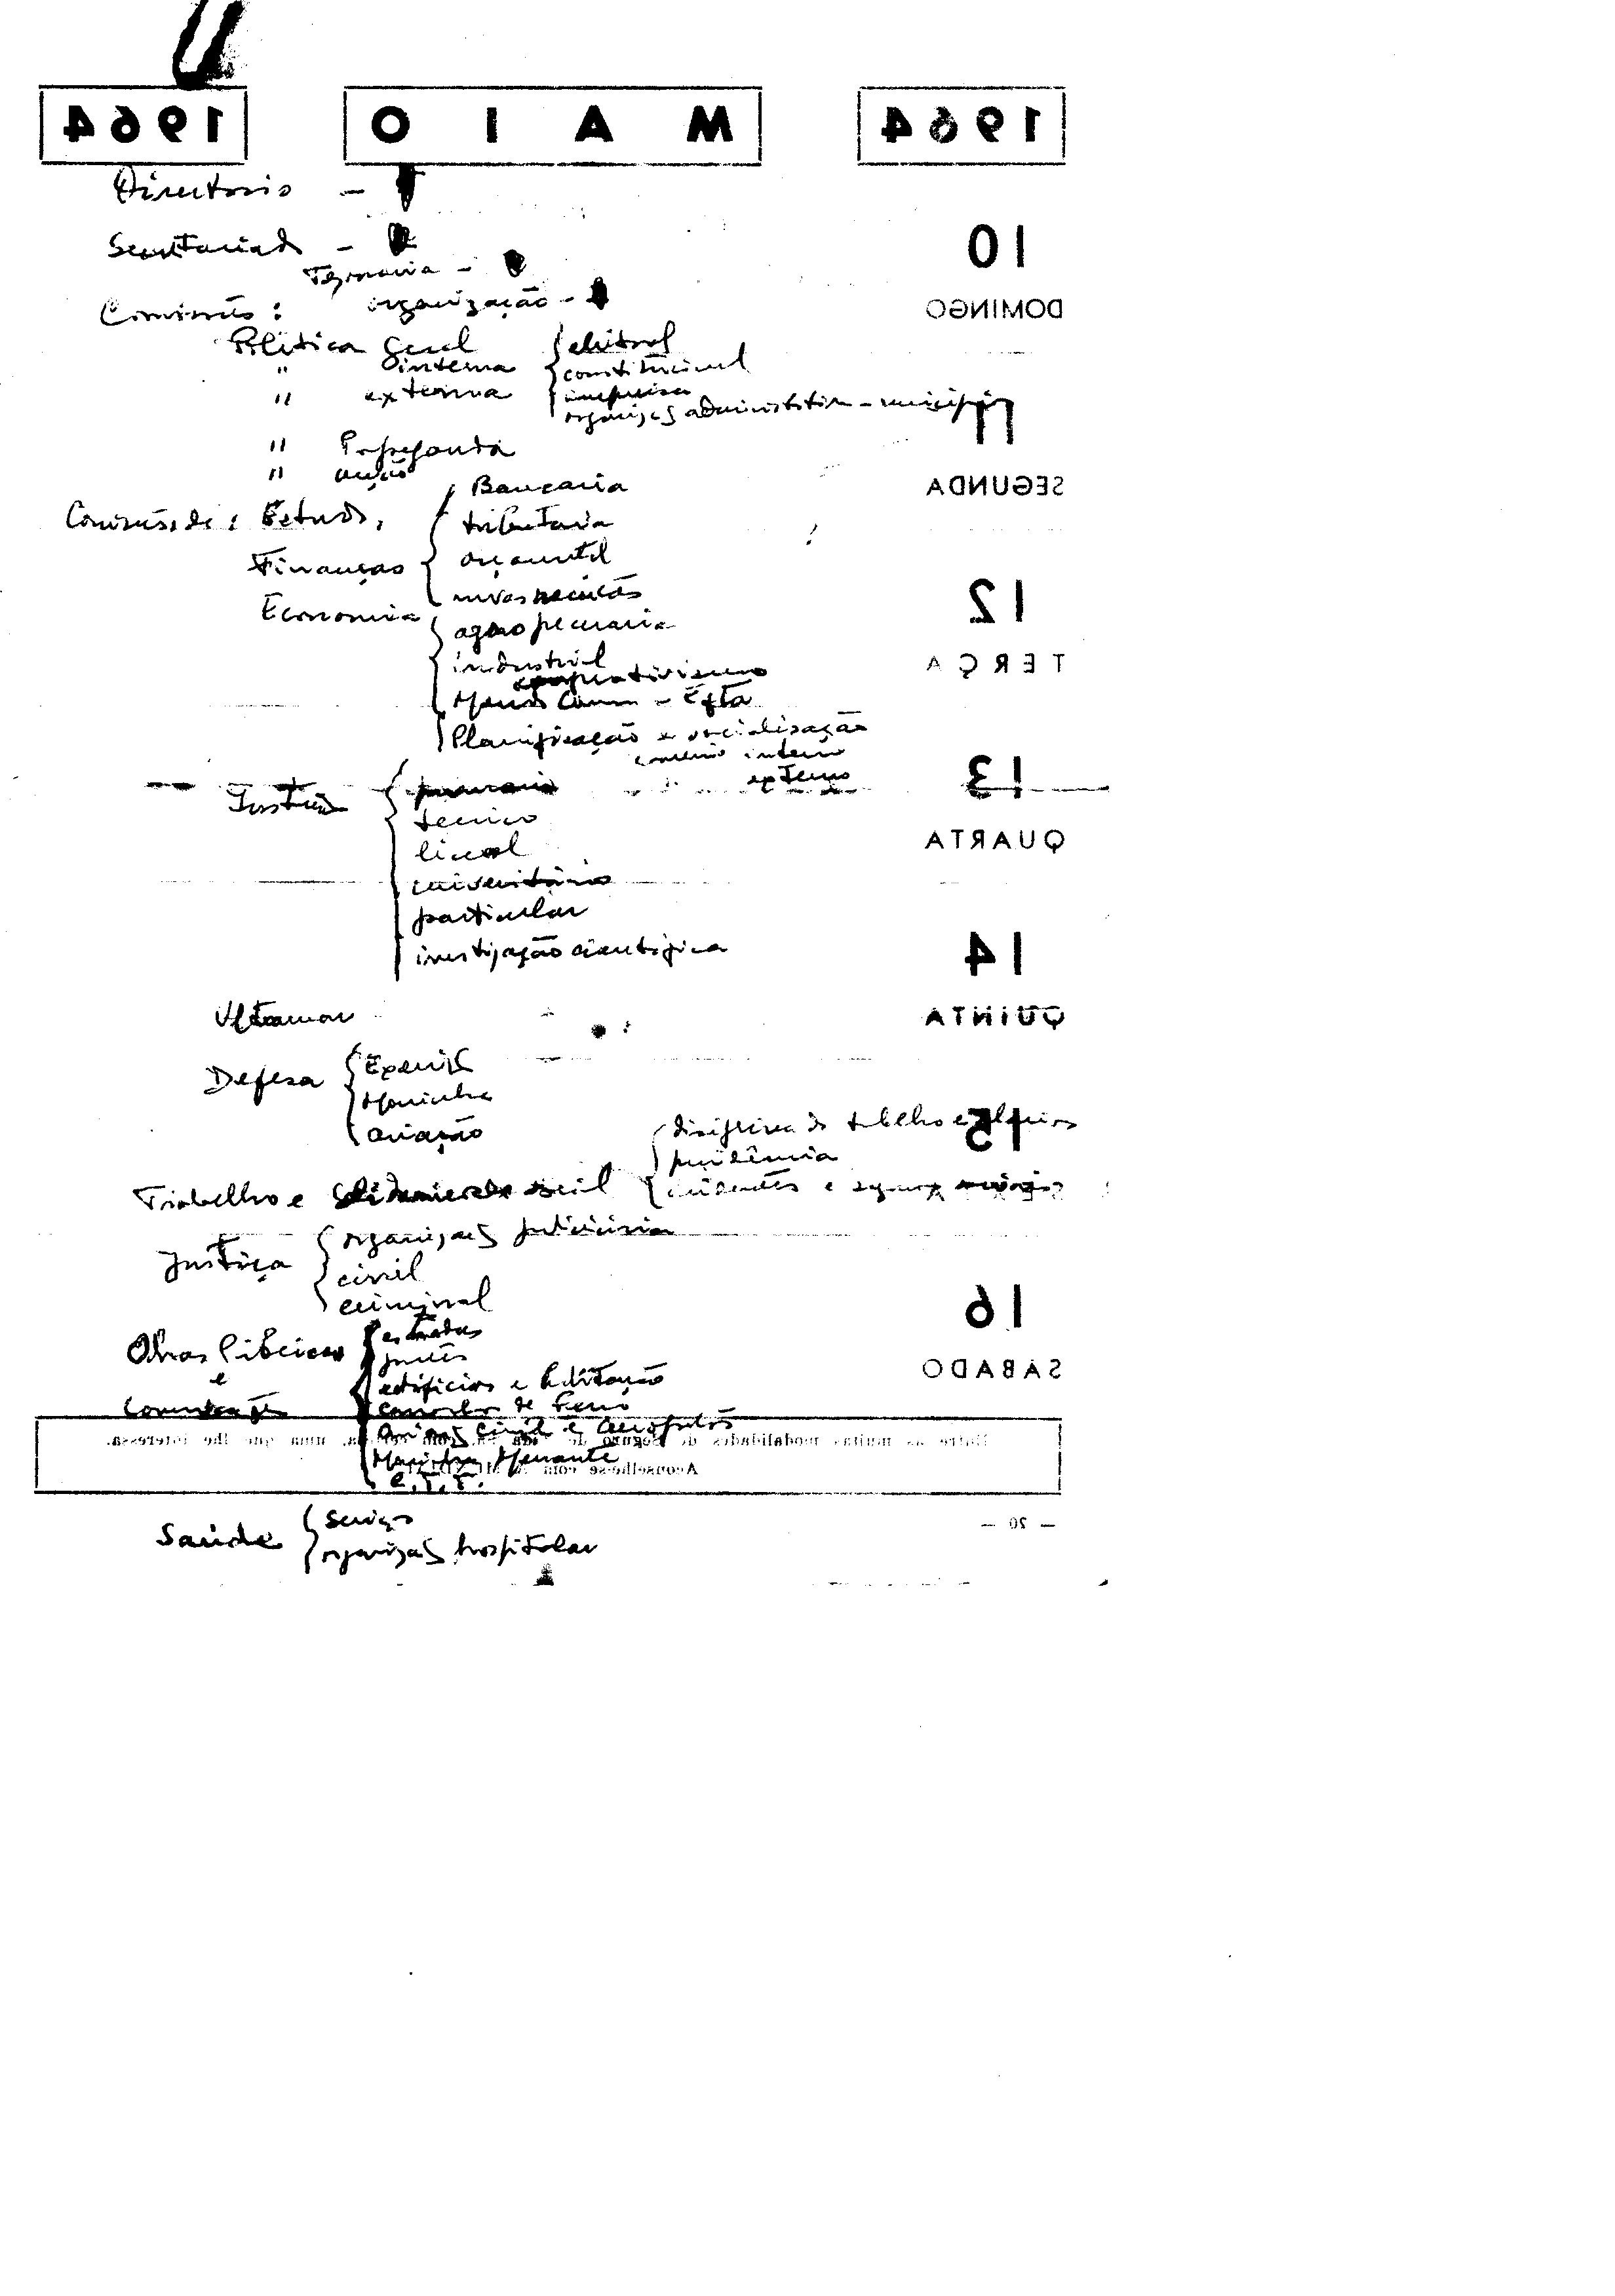 1964 MAIO 1964
Directorio -
Secretariado -
Tesouraria -
organização -
Comissões :
Politica Geral
" interna
" externa
eleitoral
constitucional
imprensa
organização administrativa - municipios
" Propaganda
" acção
Comissões de : Estudo,
Finanças
Bancaria
tributaria
orçamental
Economia
agro pecuaria
industrial
cooperativismo
Mercado Comum - Efta
Planificação e socialização
comercio interno
externo
tecnico
liceal
universitário
particular
investigação cientifica
Ultramar
Defesa
Exercito
Marinha
aviação
Trabalho e
disciplina do trabalho e
previdência
acidentes e
Justiça
organização judiciária
civil
criminal
Obras Públicas
e
Comunicações
estradas
pontes
edificios e habitação
caminhos de ferro
aviação civil e aeroportos
Marinha Mercante
C.T.T.
Saúde
Serviços
organização hospitalar
10
DOMINGO
11
SEGUNDA
12
TERÇA
13
QUARTA
14
QUINTA
15
16
SÁBADO
Entre as muitas modalidades de Seguro de uma que lhe interessa.
Aconselhe-se com
— 20 —